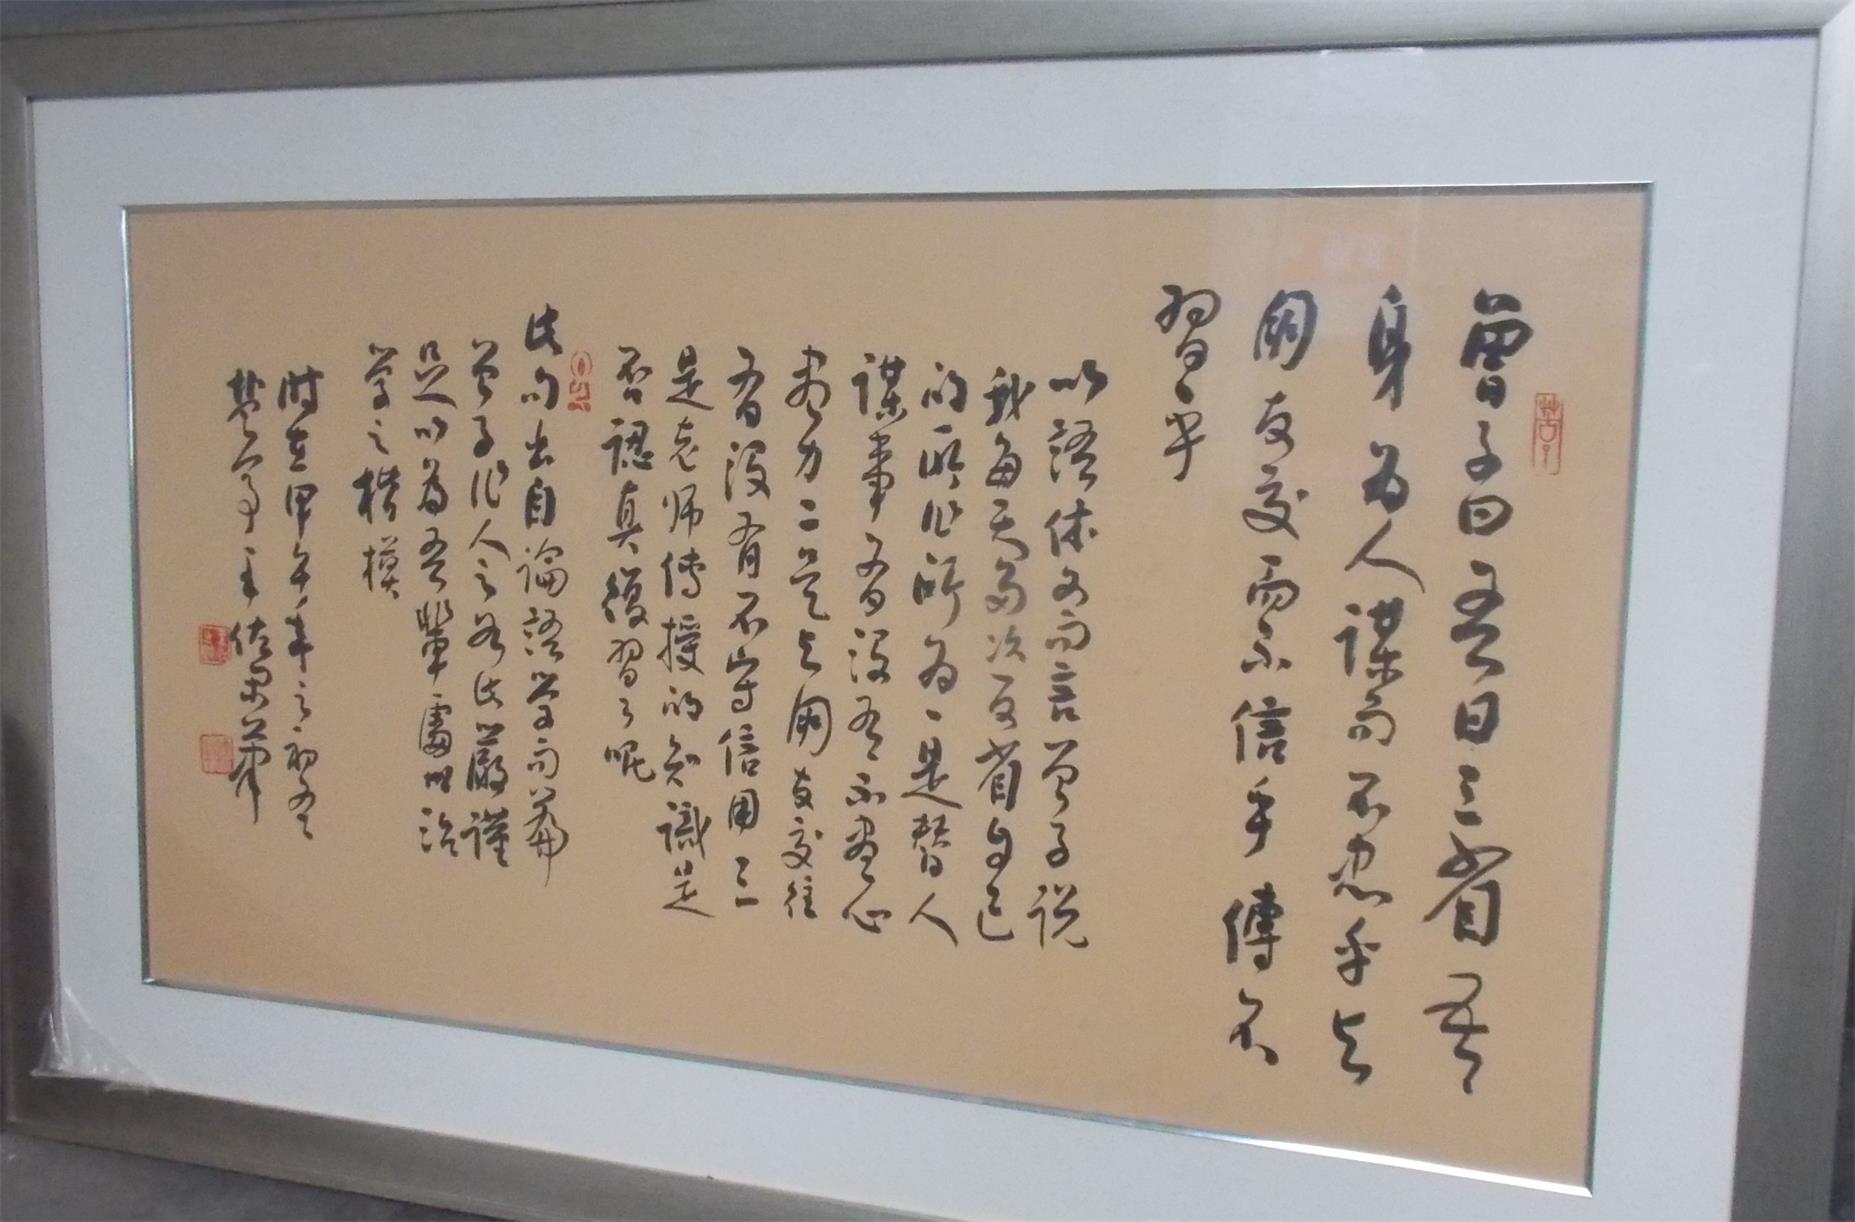 曾子曰吾日三省吾
身為人謀而不忠乎與
朋友交而不信乎傳不
習乎
以語体文而言曾子說
我每天多次反省自己
的所作所為一是替人
謀事有没有不盡心
盡力二是與朋友交往
有没有不守信用三
是老师傳授的知識是
否認真復習了呢
此句出自論語學而篇
曾子作人之如此嚴謹
足以為吾輩處世治
學之楷模
時在甲午年之初冬
主佐